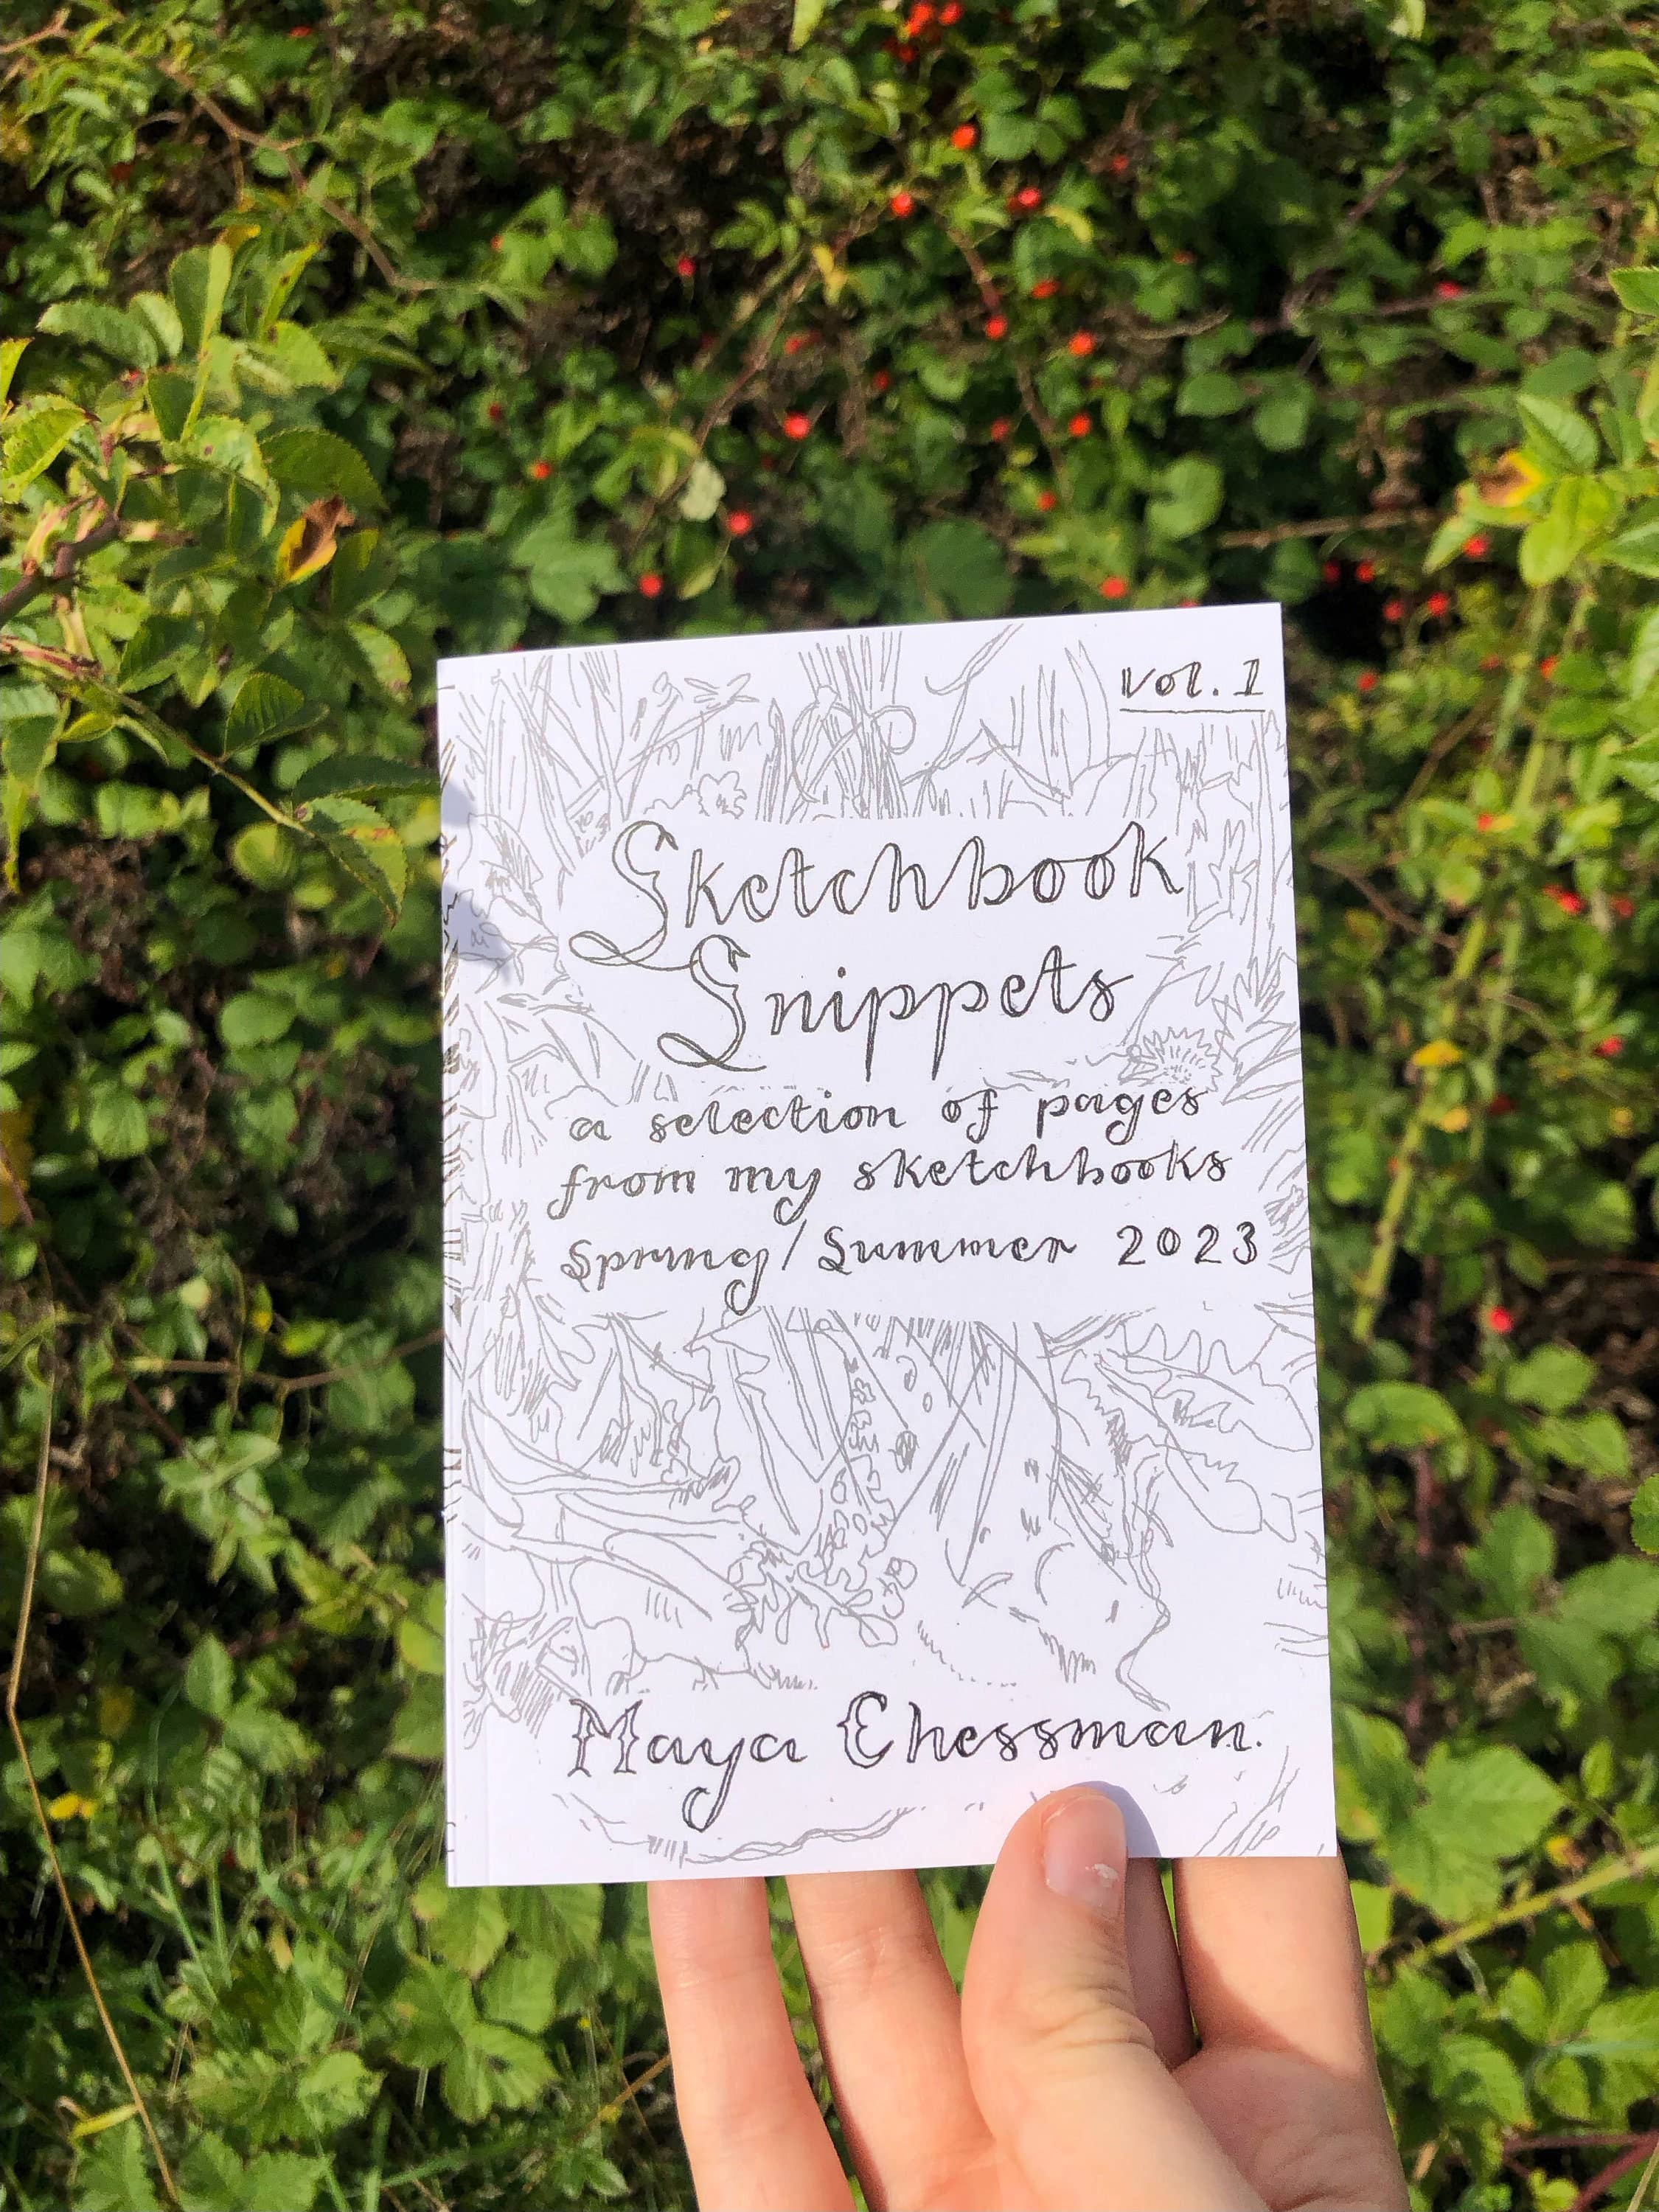 vol. 1
Sketchbook
Snippets
a selection of pages
from my sketchbooks
Spring/Summer 2023
Maya Chessman.